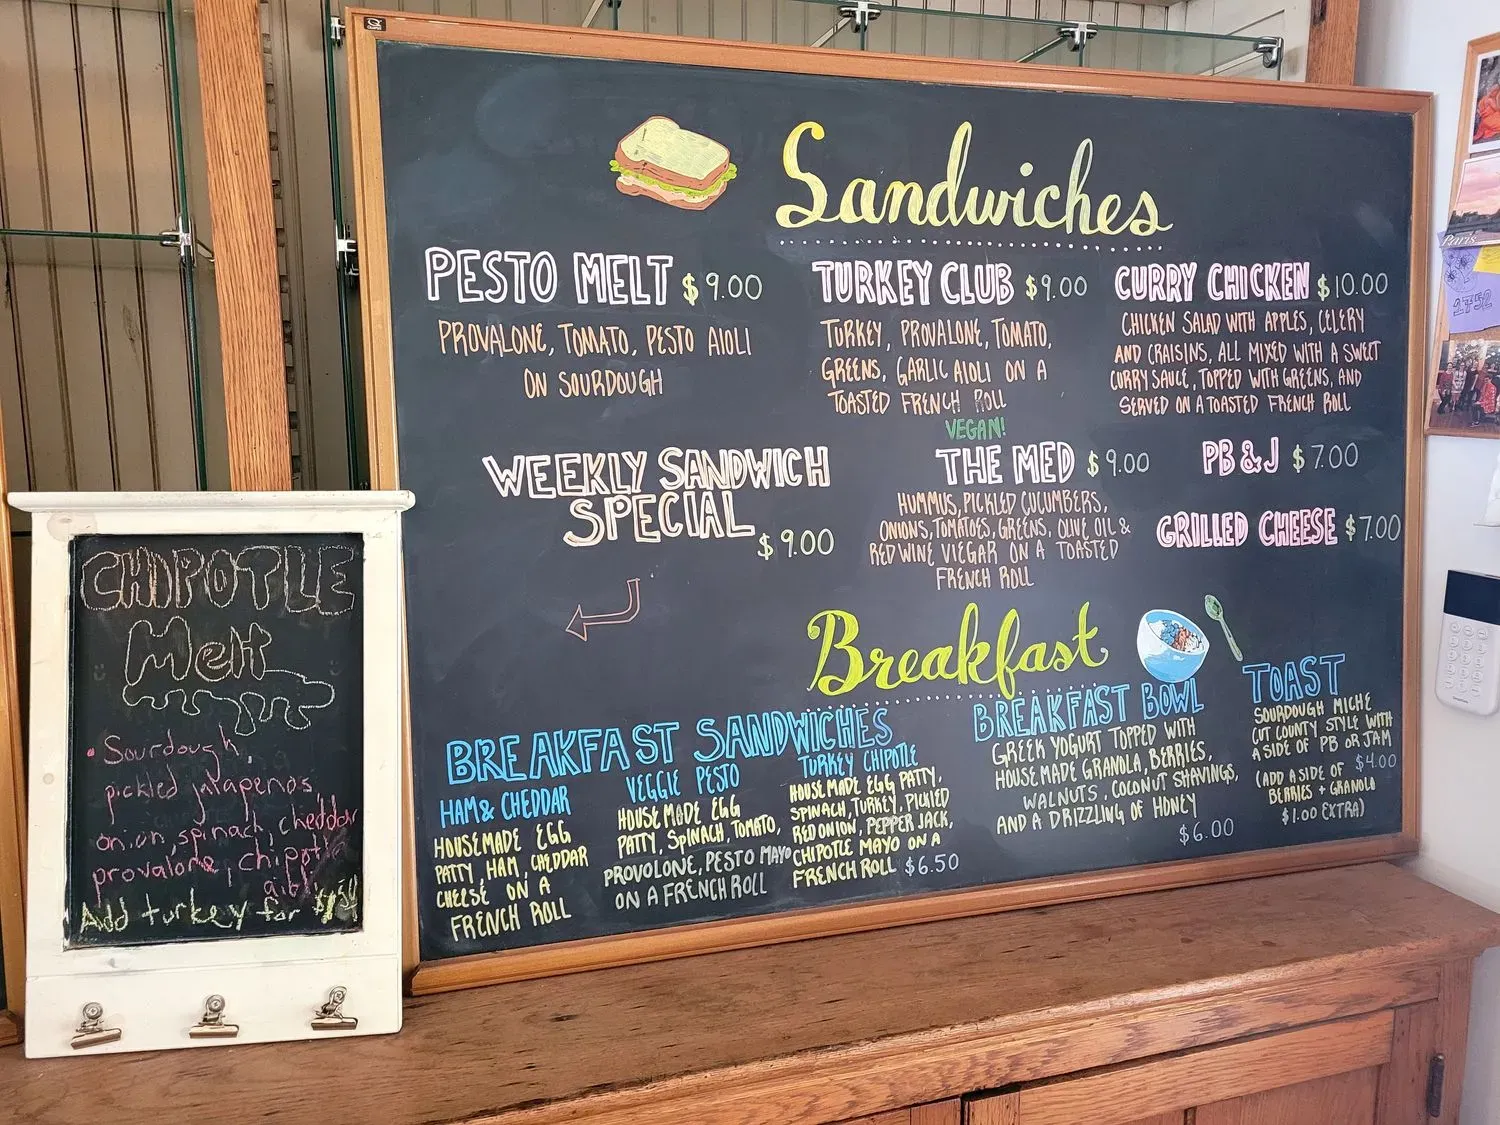 Sandwiches
PESTO MELT $9.00
PROVALONE, TOMATO, PESTO AIOLI
ON SOURDOUGH
TURKEY CLUB $9.00
TURKEY, PROVALONE, TOMATO,
GREENS, GARLIC AIOLI ON A
TOASTED FRENCH ROLL
CURRY CHICKEN $10.00
CHICKEN SALAD WITH APPLES, CELERY
AND CRAISINS, ALL MIXED WITH A SWEET
CURRY SAUCE, TOPPED WITH GREENS, AND
SERVED ON A TOASTED FRENCH ROLL
WEEKLY SANDWICH
SPECIAL
$9.00
VEGAN!
THE MED $9.00
HUMMUS, PICKLED CUCUMBERS,
ONIONS, TOMATOES, GREENS, OLIVE OIL &
RED WINE VIEGAR ON A TOASTED
FRENCH ROLL
PB & J $7.00
GRILLED CHEESE $7.00
Breakfast
BREAKFAST SANDWICHES
HAM & CHEDDAR
HOUSEMADE EGG
PATTY, HAM, CHEDDAR
CHEESE ON A
FRENCH ROLL
VEGGIE PESTO
HOUSEMADE EGG
PATTY, SPINACH, TOMATO,
PROVOLONE, PESTO MAYO
ON A FRENCH ROLL
TURKEY CHIPOTLE
HOUSEMADE EGG PATTY,
SPINACH, TURKEY, PICKLED
RED ONION, PEPPER JACK,
CHIPOTLE MAYO ON A
FRENCH ROLL $6.50
BREAKFAST BOWL
GREEK YOGURT TOPPED WITH
HOUSEMADE GRANOLA, BERRIES,
WALNUTS, COCONUT SHAVINGS,
AND A DRIZZLING OF HONEY
$6.00
TOAST
SOURDOUGH MICHE
CUT COUNTY STYLE WITH
A SIDE OF PB OR JAM
$4.00
(ADD A SIDE OF
BERRIES + GRANOLA
$1.00 EXTRA)
CHIPOTLE
Melt
• Sourdough,
pickled jalapenos,
onion, spinach, cheddar
provalone, chipotle
aioli
Add turkey for
Paris